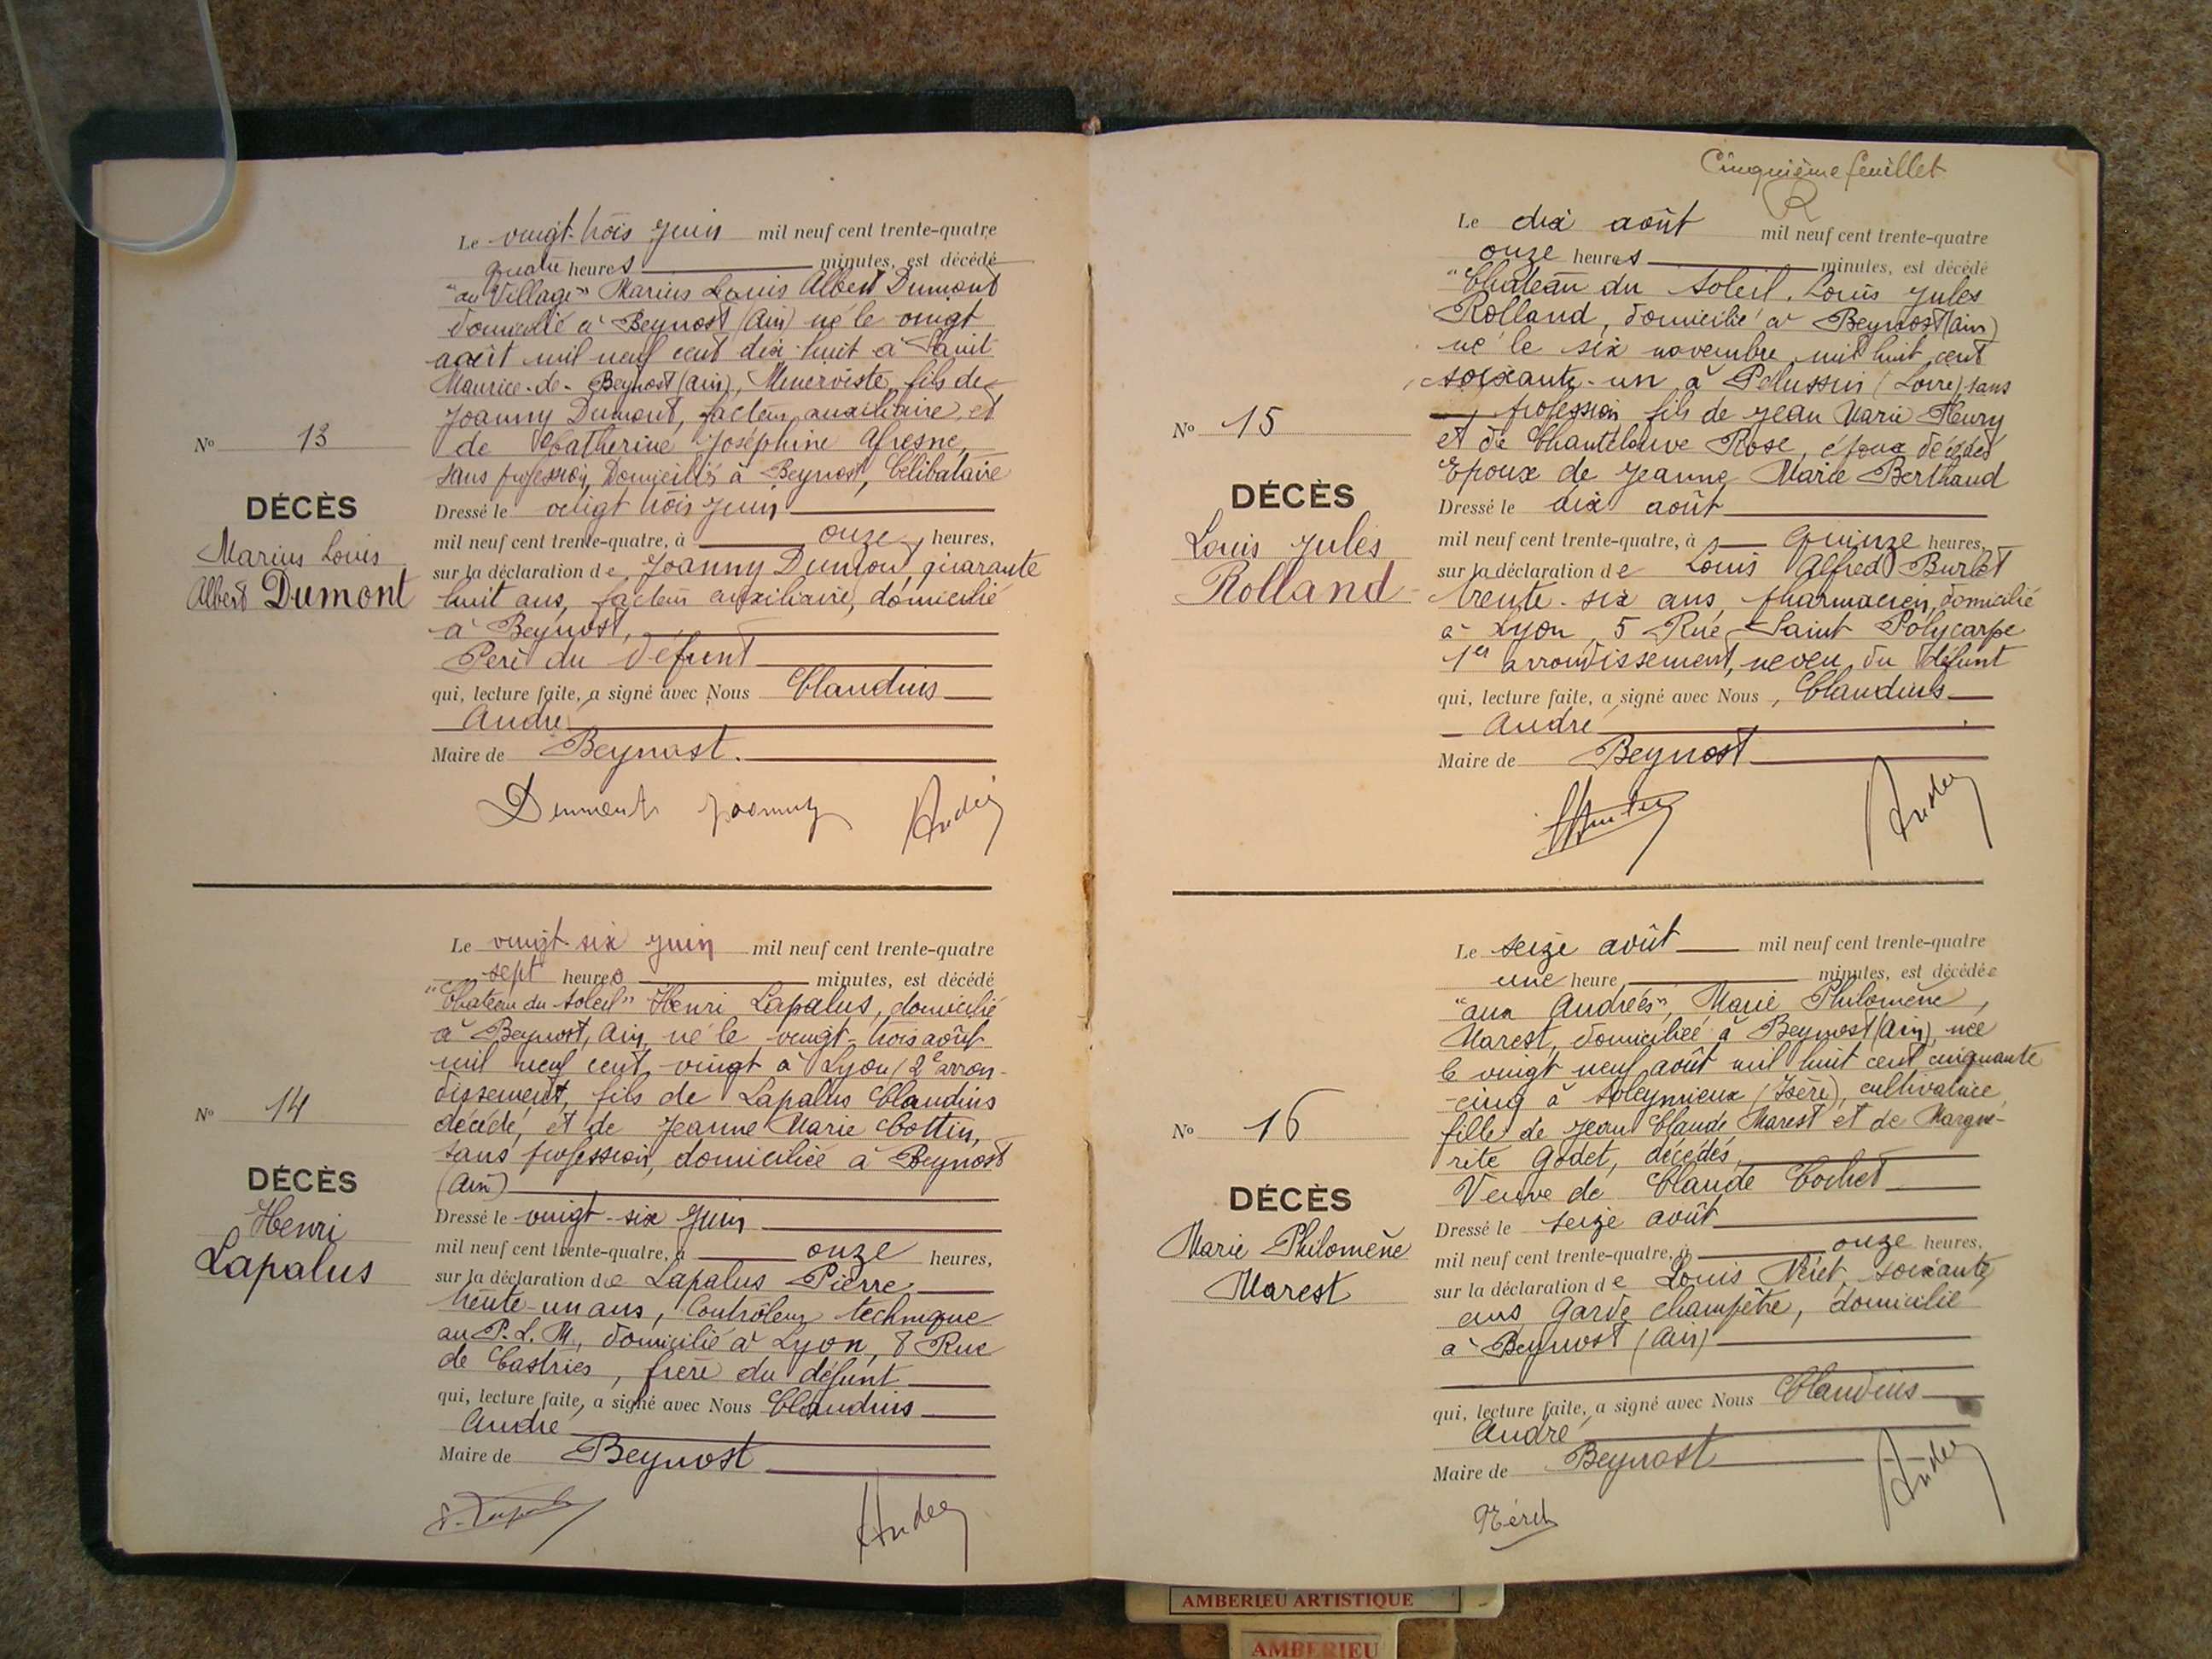 Le vingt-trois juin mil neuf cent trente-quatre
quatre heures minutes, est décédé
"au Village" Marius Louis Albert Dumont
domicilié à Beynost (Ain) né le vingt
août mil neuf cent dix-huit à Saint
Maurice-de-Beynost (Ain), Menuisier, fils de
Joanny Dumont, facteur auxiliaire, et
de Catherine Joséphine
sans profession, Domiciliés à Beynost, Célibataire
N° 13
DÉCÈS
Marius Louis
Albert Dumont
Dressé le vingt trois juin
mil neuf cent trente-quatre, à onze heures,
sur la déclaration de Joanny Dumont, quarante
huit ans, facteur auxiliaire, domicilié
à Beynost,
Père du défunt
qui, lecture faite, a signé avec Nous Claudius
André
Maire de Beynost.
Dumont Joanny André
Le vingt-six juin mil neuf cent trente-quatre
sept heures minutes, est décédé
"Chateau du Soleil" Henri Lapalus, domicilié
à Beynost, Ain, né le vingt-trois août
mil neuf cent vingt à Lyon (2e arron-
dissement, fils de Lapalus Claudius
décédé, et de Jeanne Marie Cottin,
sans profession, domiciliée à Beynost
(Ain)
N° 14
DÉCÈS
Henri
Lapalus
Dressé le vingt-six juin
mil neuf cent trente-quatre, à onze heures,
sur la déclaration de Lapalus Pierre
trente-un ans, Contrôleur technique
au P.L.M., domicilié à Lyon, 8 Rue
de Castries, frère du défunt
qui, lecture faite, a signé avec Nous Claudius
André
Maire de Beynost
André
Cinquième feuillet
Le dix août mil neuf cent trente-quatre
onze heures minutes, est décédé
"Chateau du Soleil. Louis Jules
Rolland, domicilié à Beynost (Ain)
né le six novembre mil huit cent
soixante-un à Pélussin (Loire), sans
profession, fils de Jean Marie Fleury
et de Chanteloube Rose, époux décédés
Epoux de Jeanne Marie Berthaud
N° 15
DÉCÈS
Louis Jules
Rolland
Dressé le dix août
mil neuf cent trente-quatre, à quinze heures,
sur la déclaration de Louis Alfred Burlet
trente-six ans, pharmacien, domicilié
à Lyon, 5 Rue Saint Polycarpe
1er arrondissement, neveu du défunt
qui, lecture faite, a signé avec Nous, Claudius
André
Maire de Beynost
André
Le seize août mil neuf cent trente-quatre
une heure minutes, est décédée
"aux Andrés", Marie Philomène,
Marest, domiciliée à Beynost (Ain), née
le vingt neuf août mil huit cent cinquante
-cinq à Soleymieux (Isère), cultivatrice,
fille de Jean Claude Marest et de Margue-
rite Godet, décédés,
Veuve de Claude Cochet
N° 16
DÉCÈS
Marie Philomène
Marest
Dressé le seize août
mil neuf cent trente-quatre, à onze heures,
sur la déclaration de Louis Néret, soixante
ans, Garde champêtre, domicilié
à Beynost (Ain)
qui, lecture faite, a signé avec Nous Claudius
André
Maire de Beynost
Néret André
AMBERIEU ARTISTIQUE
AMBERIEU